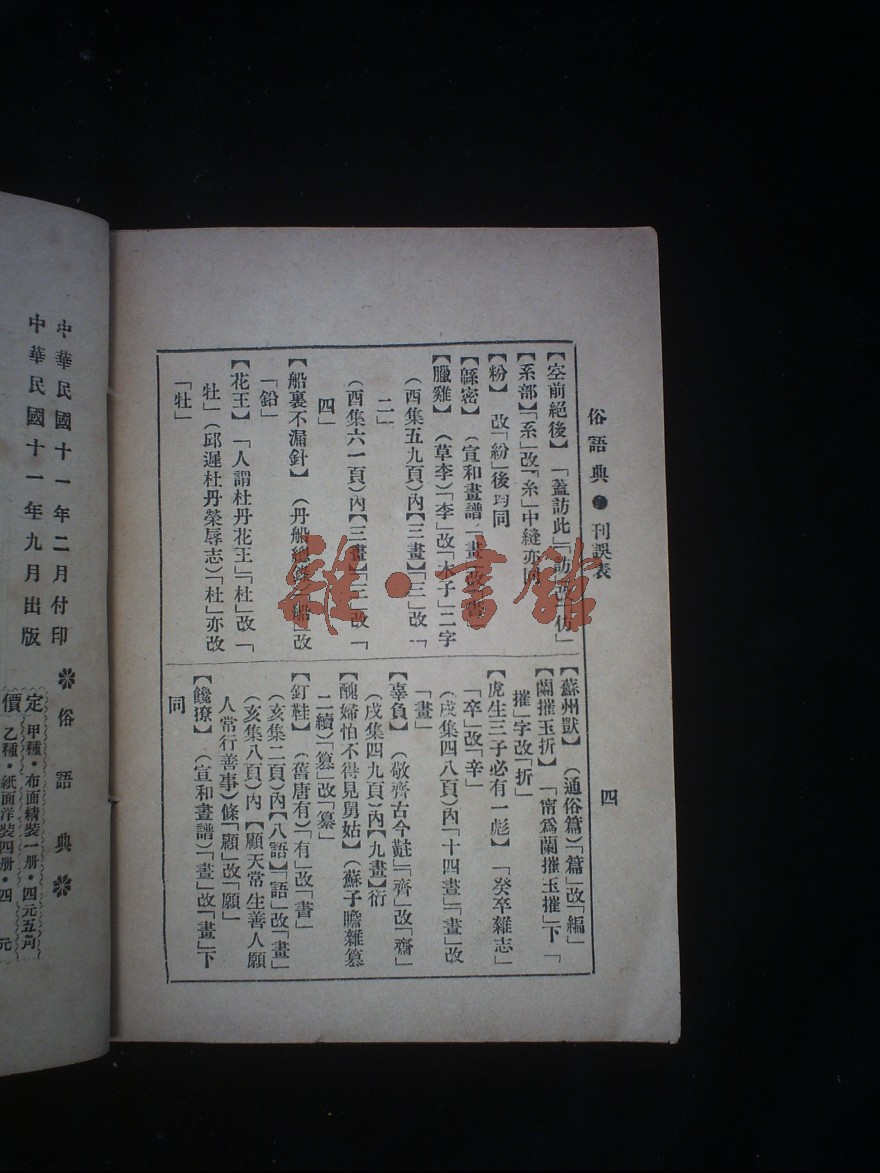 俗語典●刊誤表
四
【空前絕後】「蓋訪此」「訪」改「仿」
【系部】「系」改「糸」中縫亦同
【粉】改「紛」後均同
【緜密】(宣和畫譜「畫」改「書」
【臘雞】(草李)「李」改「木子」二字
(酉集五九頁)內【三畫】「三」改「
二」
(酉集六一頁)內【三畫】「三」改「
四」
【船裏不漏針】(丹船總錄「船」改
「鉛」
【花王】「人謂杜丹花王」「杜」改「
牡」(邱遲杜丹榮辱志)「杜」亦改
「牡」
【蘇州獃】(通俗篇)「篇」改「編」
【蘭摧玉折】「甯爲蘭摧玉摧」下「
摧」字改「折」
【虎生三子必有一彪】「癸卒雜志」
「卒」改「辛」
(戌集四八頁)內「十四畫」「畫」改
「畫」
【辜負】(敬齊古今黈)「齊」改「齋」
(戌集四九頁)內【九畫】衍
【醜婦怕不得見舅姑】(蘇子瞻雜篡
二續)「篡」改「纂」
【釘鞋】(舊唐有)「有」改「書」
(亥集二頁)內【八語】「語」改「畫」
(亥集八頁)內【願天常生善人願
人常行善事】條「願」改「願」
【饞獠】(宣和畫譜)「畫」改「畫」下
同
中華民國十一年二月付印
中華民國十一年九月出版
❋俗語典❋
定價
甲種・布面精裝一册・四元五角
乙種・紙面洋裝四册・四元
雜・書館